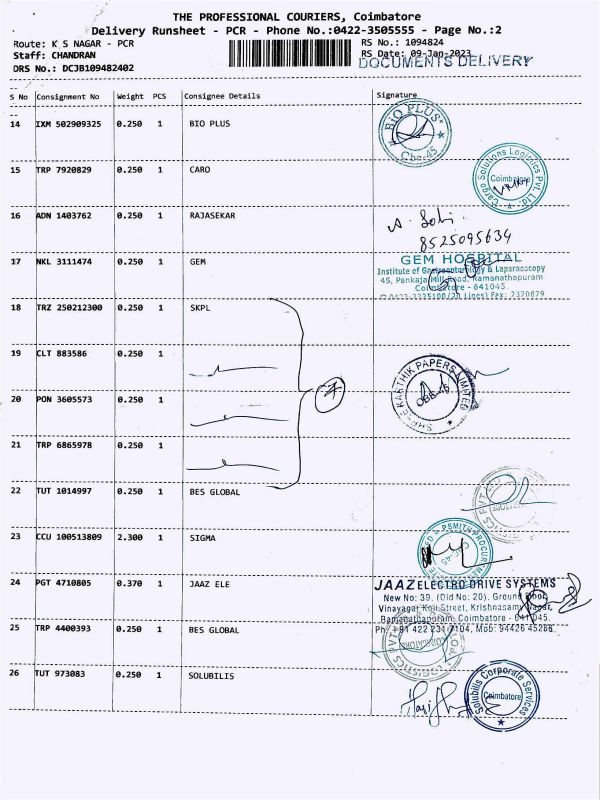 THE PROFESSIONAL COURIERS, Coimbatore
Delivery Runsheet - PCR - Phone No.:0422-3505555 - Page No.:2
Route: K S NAGAR - PCR RS No.: 1094824
Staff: CHANDRAN RS Date: 09-Jan-2023
DOCUMENTS DELIVERY
DRS No.: DCJB109482402
S No Consignment No Weight PCS Consignee Details Signature
14 IXM 502909325 0.250 1 BIO PLUS
BIO PLUS
Cbe-45
15 TRP 7920829 0.250 1 CARO
Cargo Solutions Logistics Pvt. Ltd.
Coimbatore
16 ADN 1403762 0.250 1 RAJASEKAR
8525095634
17 NKL 3111474 0.250 1 GEM
GEM HOSPITAL
Institute of Gastroenterology & Laparascopy
45, Pankaja Mill Road, Ramanathapuram
Coimbatore - 641045.
18 TRZ 250212300 0.250 1 SKPL
19 CLT 883586 0.250 1
SHREE KARTHIK PAPERS LIMITED
20 PON 3605573 0.250 1
21 TRP 6865978 0.250 1
22 TUT 1014997 0.250 1 BES GLOBAL
23 CCU 100513809 2.300 1 SIGMA
24 PGT 4710805 0.370 1 JAAZ ELE
JAAZ ELECTRO DRIVE SYSTEMS
New No: 39, (Old No: 20), Ground Floor,
Vinayagar Koil Street, Krishnasamy Nagar,
Ramanathapuram, Coimbatore - 641 045.
25 TRP 4400393 0.250 1 BES GLOBAL
26 TUT 973083 0.250 1 SOLUBILIS
Solubilis Corporate Services
Coimbatore